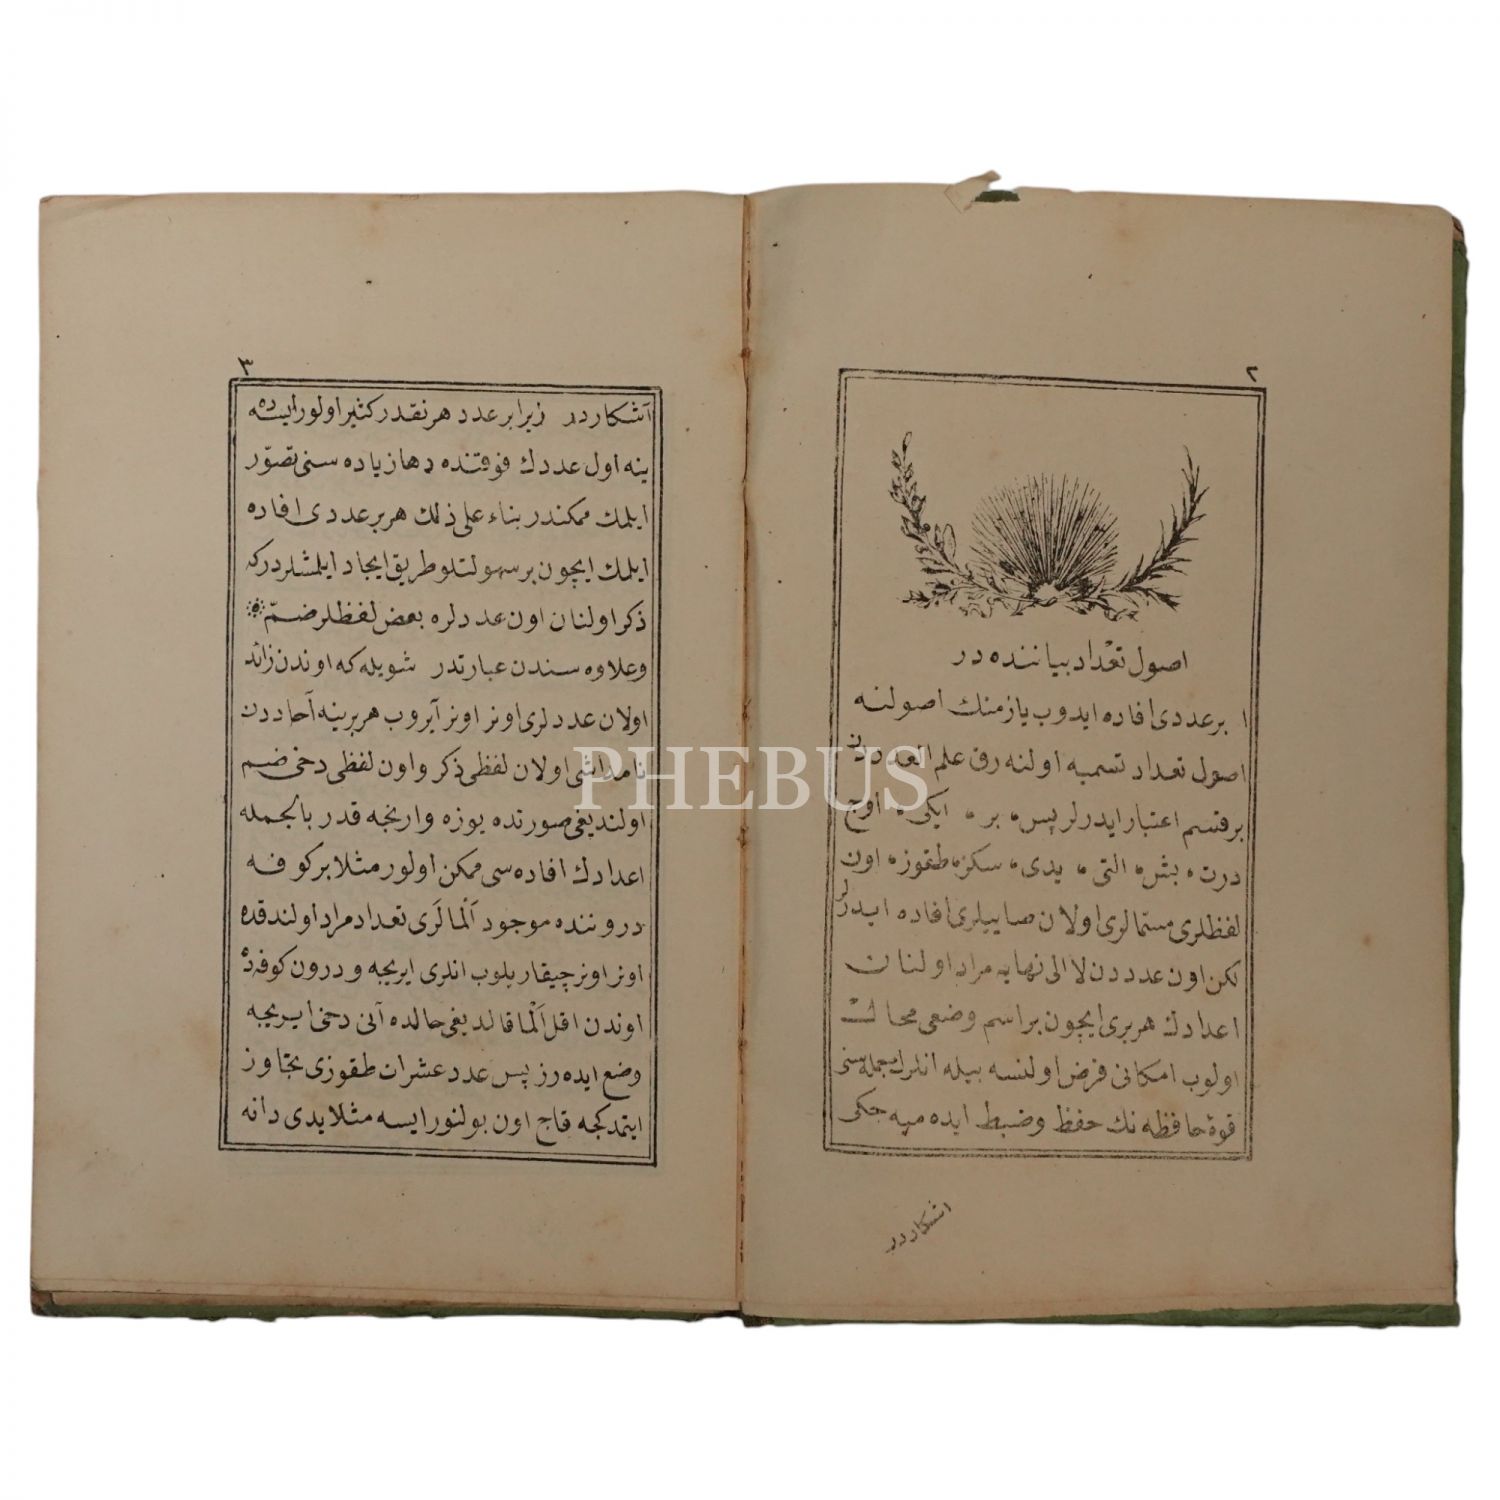 ٢
اصول تعداد بياننده در
١ بر عددى افاده ايدوب يازمنك اصولنه
اصول تعداد تسميه اولنه رق علم العددن
برقسم اعتبار ايدرلر پس ، بر ، ايكى ، اوچ
درت ، بش ، التى ، يدى ، سكز ، طقوز ، اون
لفظلرى مسمالرى اولان صاييلرى افاده ايدر
لكن اون عدددن لا الى نهايه مراد اولنان
اعدادك هربرى ايچون براسم وضعى محال
اولوب امكانى فرض اولنسه بيله انلرك جمله سنى
قوۀ حافظه نك حفظ وضبط ايده ميه جكى
اشكاردر
٣
آشكاردر زيرا بر عدد هر نقدر كثير اولور ايسه ده
ينه اول عددك فوقنده دها زياده سنى تصوّر
ايلمك ممكندر بناء على ذلك هر بر عددى افاده
ايلمك ايچون بر سهولتلو طريق ايجاد ايلمشلردركه
ذكر اولنان اون عددلره بعض لفظلر ضمّ
وعلاوه سندن عبارتدر شويله كه اوندن زائد
اولان عددلرى اونر اونر آيروب هر برينه آحاددن
نامداشى اولان لفظى ذكر واون لفظى دخى ضم
اولنديغى صورتده يوزه وارنجه قدر بالجمله
اعدادك افاده سى ممكن اولور مثلا بر كوفه
دروننده موجود اَلْمالَرى تعداد مراد اولندقده
اونر اونر چيقاريلوب انلرى ايريجه ودرون كوفه ده
اوندن اقل اَلْما قالديغى حالده آنى دخى ايريجه
وضع ايده رز پس عدد عشرات طقوزى تجاوز
ايتمدكجه قاچ اون بولنور ايسه مثلا يدى دانه
PHEBUS